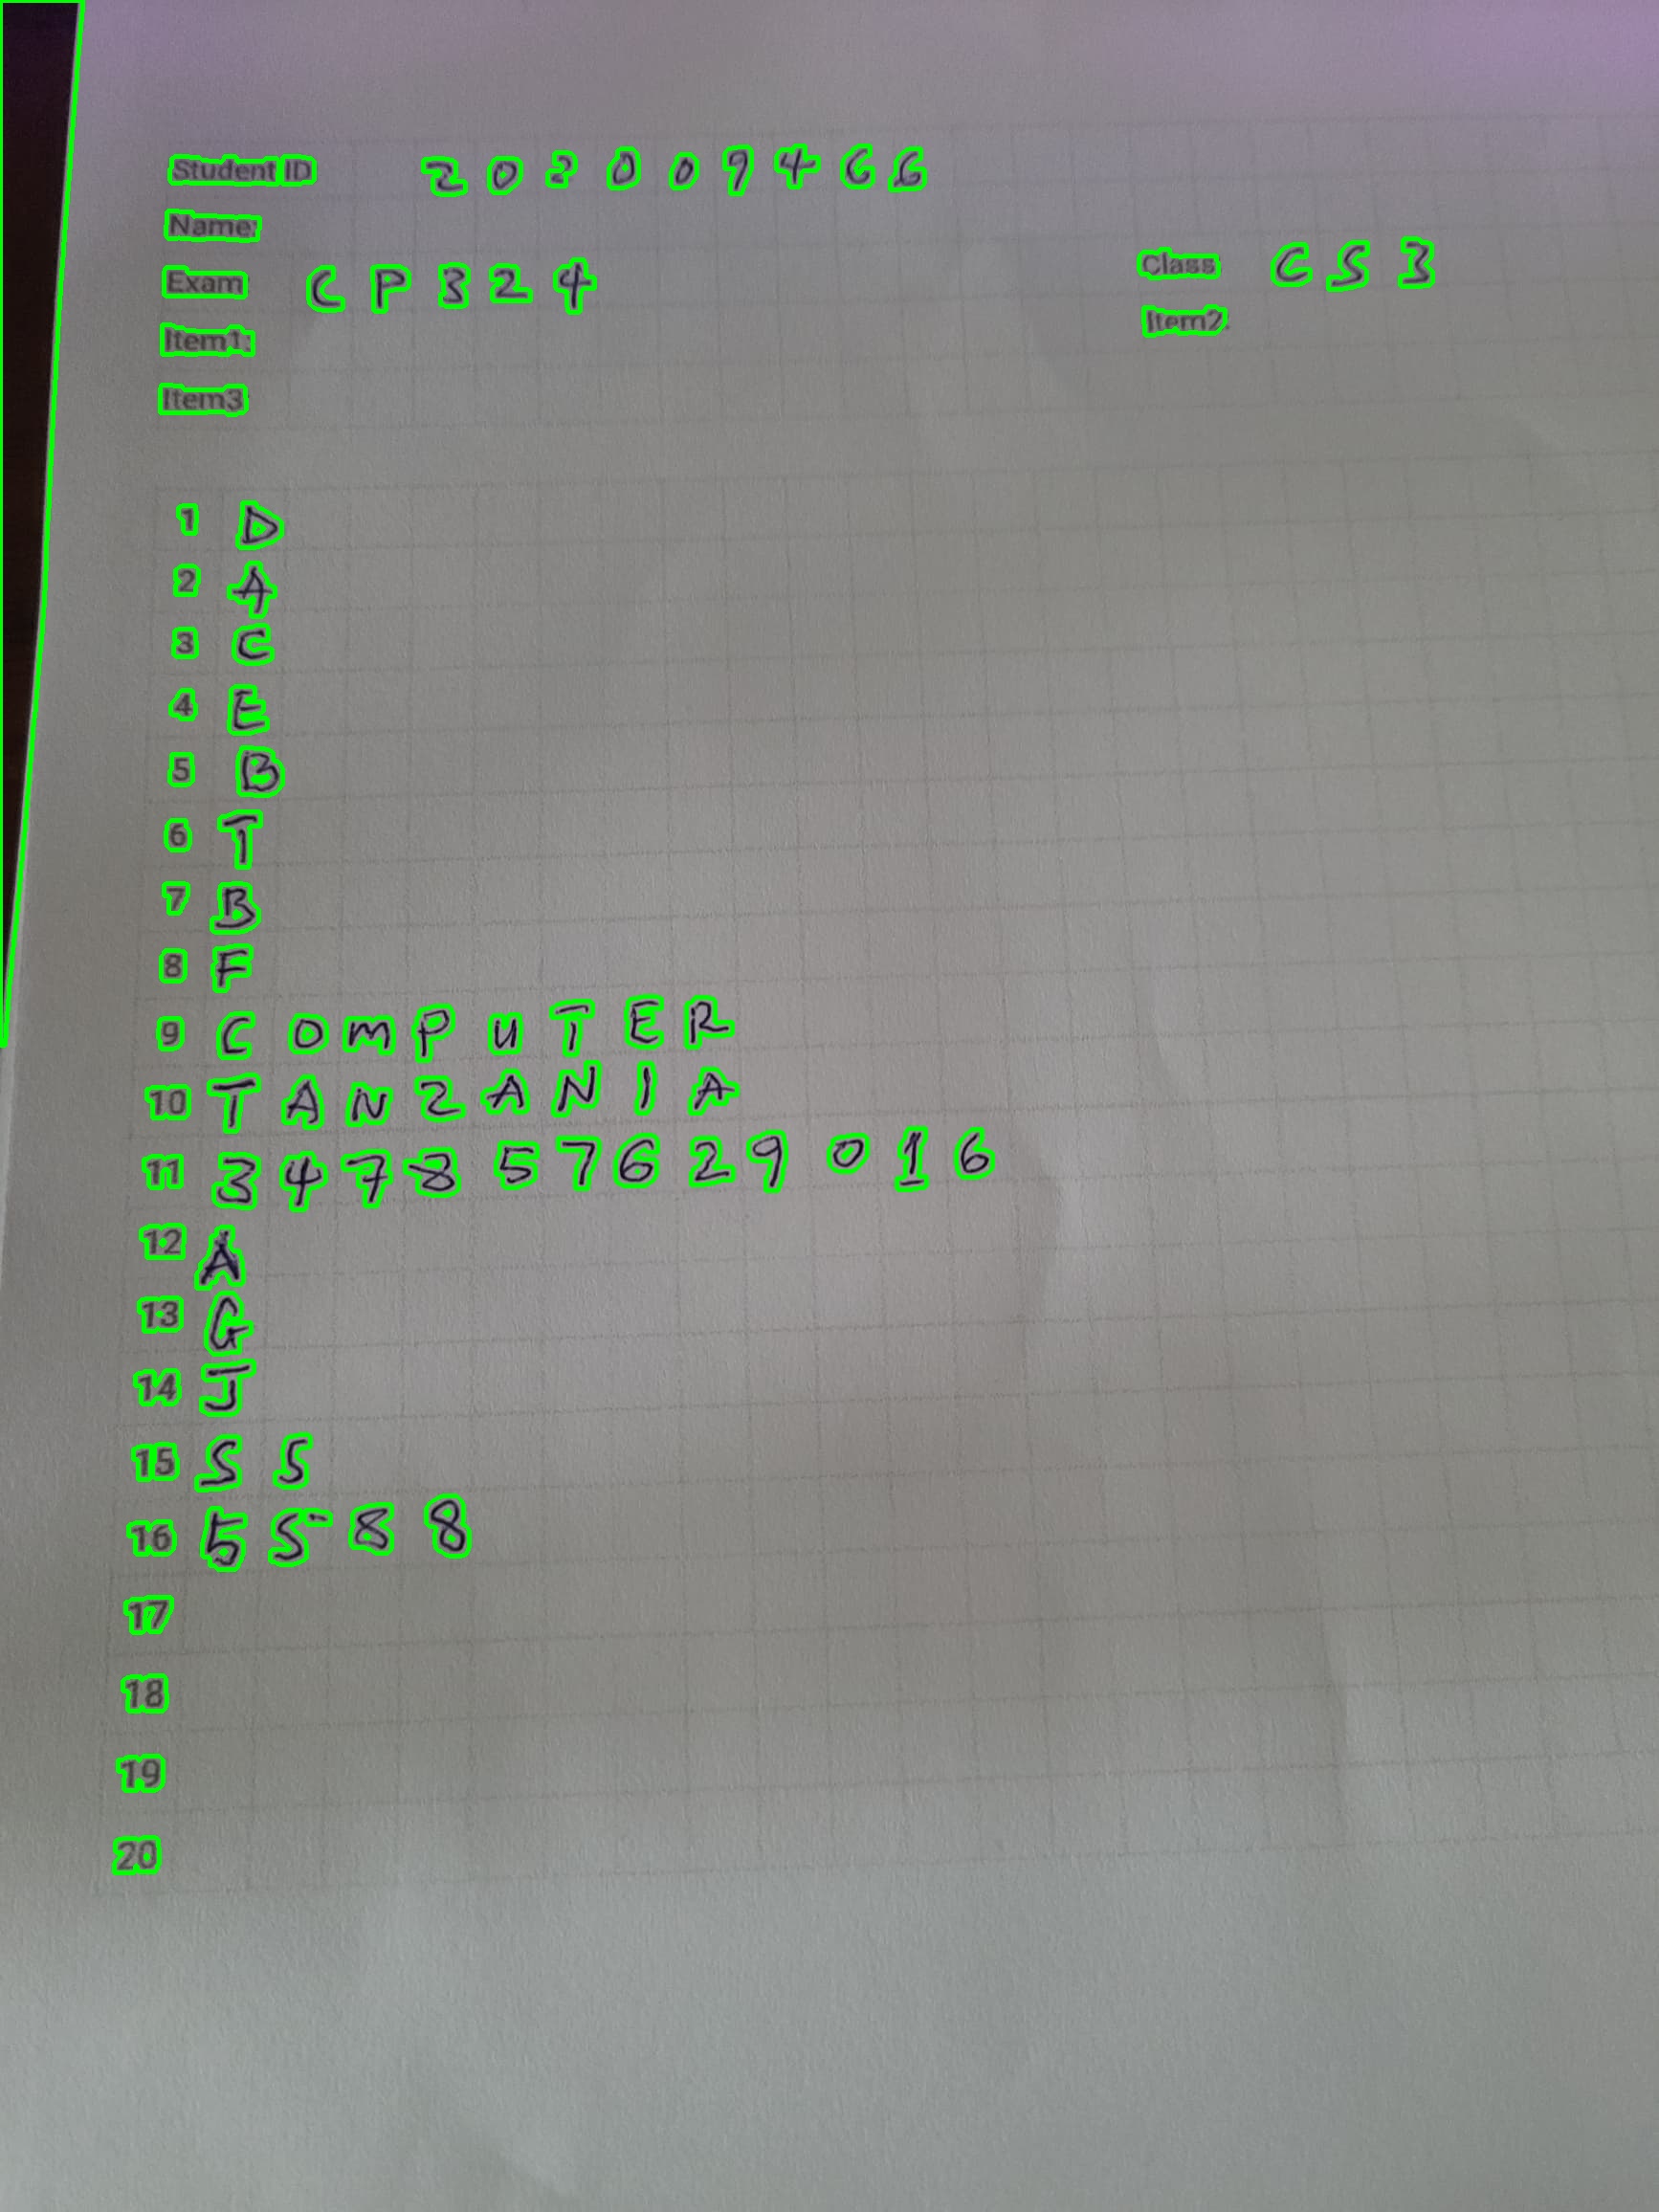 Student ID 202009466
Name:
Exam CP324 Class CS3
Item1: Item2
Item3
1 D
2 A
3 C
4 E
5 B
6 T
7 B
8 F
9 COMPUTER
10 TANZANIA
11 347857629016
12 A
13 G
14 J
15 SS
16 5588
17
18
19
20